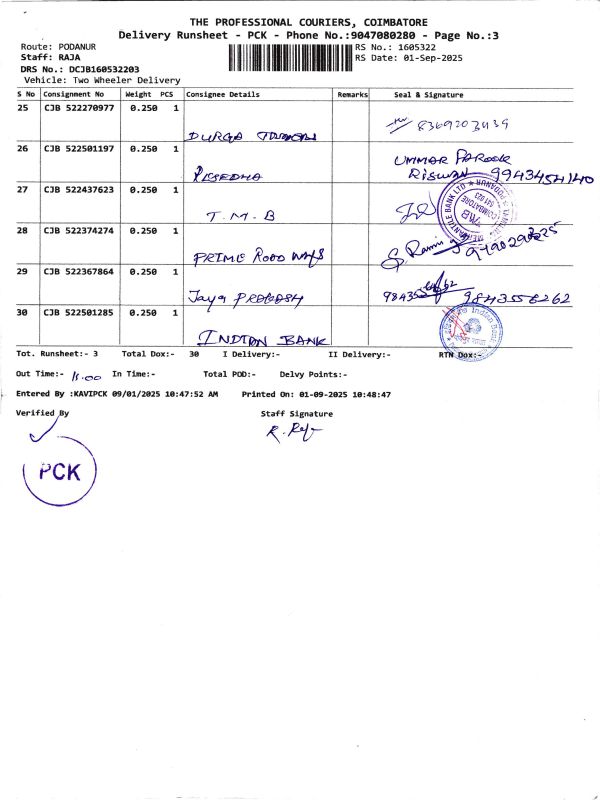 THE PROFESSIONAL COURIERS, COIMBATORE
Delivery Runsheet - PCK - Phone No.:9047080280 - Page No.:3
Route: PODANUR
RS No.: 1605322
Staff: RAJA
RS Date: 01-Sep-2025
DRS No.: DCJB160532203
Vehicle: Two Wheeler Delivery
S No Consignment No Weight PCS Consignee Details Remarks Seal & Signature
25 CJB 522270977 0.250 1
DURGA 8369203439
26 CJB 522501197 0.250 1
UMMAR FAROOK
RISWAN 9943454140
27 CJB 522437623 0.250 1
T.M.B
28 CJB 522374274 0.250 1
PRIME ROAD WAYS
29 CJB 522367864 0.250 1
Jaya PRAKASH 9843556262
30 CJB 522501285 0.250 1
INDIAN BANK
Tot. Runsheet:- 3 Total Dox:- 30 I Delivery:- II Delivery:- RTN Dox:-
Out Time:- 11.00 In Time:- Total POD:- Delvy Points:-
Entered By :KAVIPCK 09/01/2025 10:47:52 AM Printed On: 01-09-2025 10:48:47
Verified By Staff Signature
R. Raja
PCK